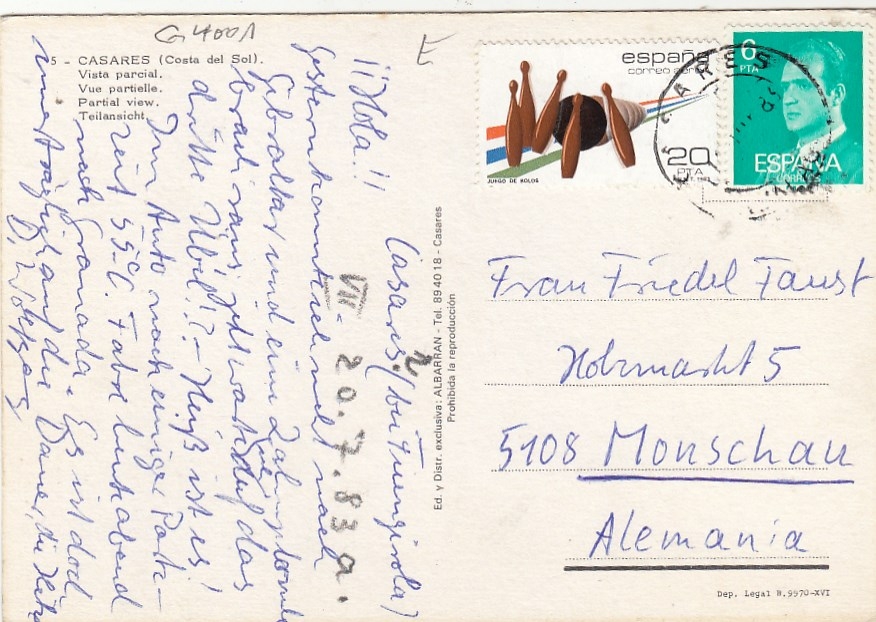 G 4001
E
5 - CASARES (Costa del Sol).
Vista parcial.
Vue partielle.
Partial view.
Teilansicht.
¡¡Hola!!
Casares, (bei Fuengirola)
VII - 20.7.83 a.
Gestern kamnten nach
Gibraltar und eine Zahnplombe
brach raus, jetzt warte ich auf das
dritte Übel!? - Heiß ist es!
Im Auto nach einiger Park-
zeit 55°C. Fahre heute abend
nach Granada. Es ist doch
auf die Dauer, die Hitze
D. Wolfgang
Ed. y Distr. exclusiva: ALBARRAN - Tel. 894018 - Casares
Prohibida la reproducción
españa
correo aéreo
20
PTA
JUEGO DE BOLOS
6
PTA
ESPAÑA
CORREOS
CASARES
Frau Friedel Faust
Holzmarkt 5
5108 Monschau
Alemania
Dep. Legal B.9970-XVI